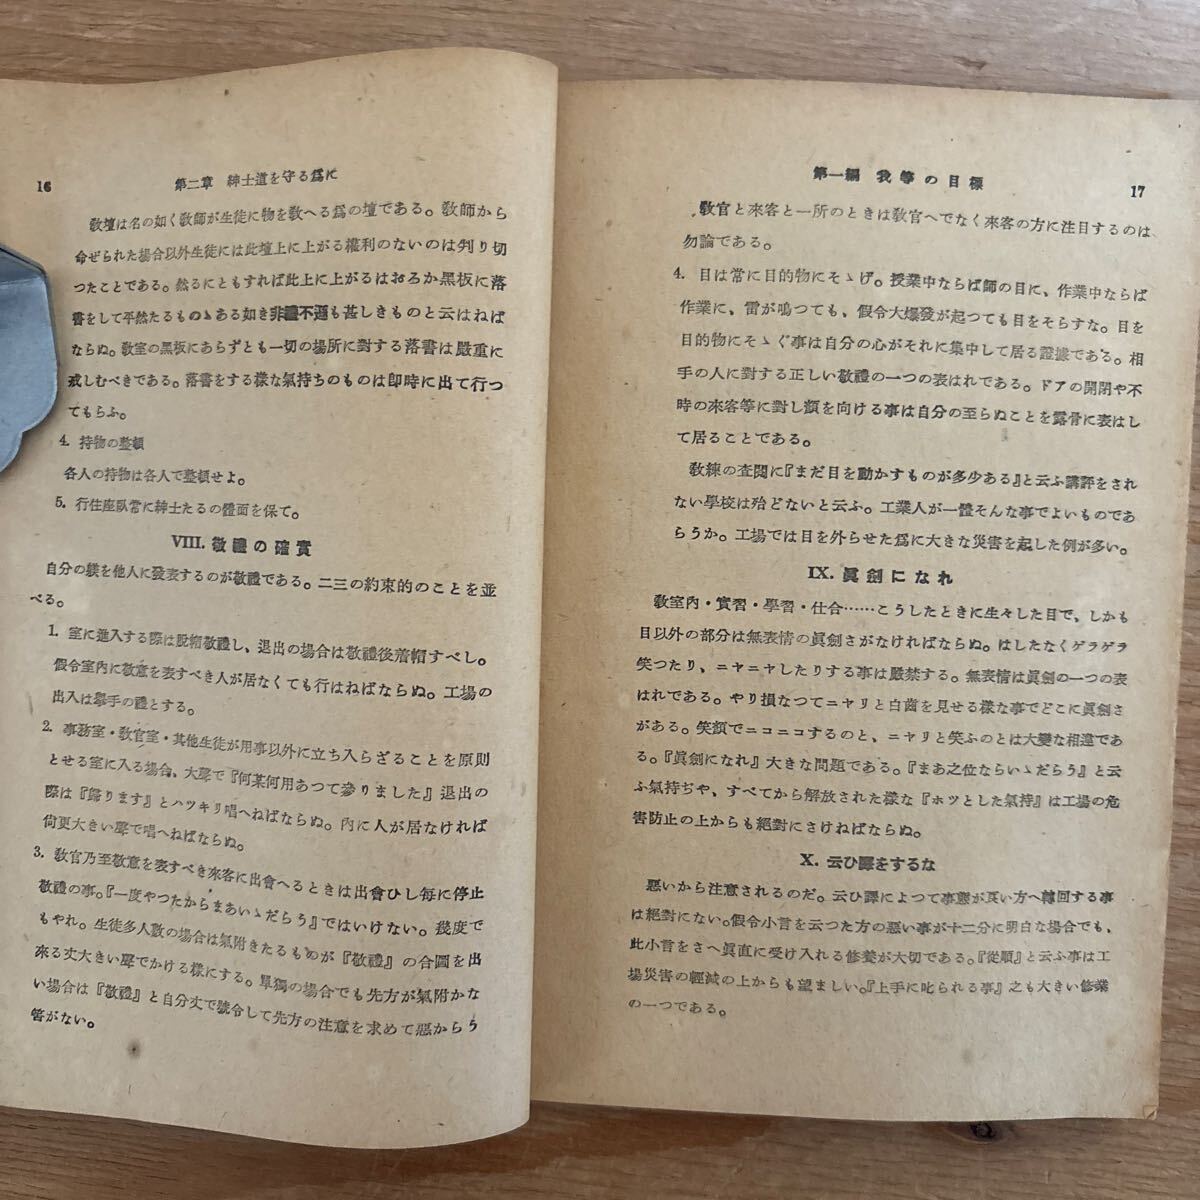 16
第二章　紳士道を守る爲に
敎壇は名の如く敎師が生徒に物を敎へる爲の壇である。敎師から
命ぜられた場合以外生徒には此壇上に上がる權利のないのは判り切
つたことである。然るにともすれば此上に上がるはおろか黑板に落
書をして平然たるものゝある如き非禮不遜も甚しきものと云はねば
ならぬ。敎室の黑板にあらずとも一切の場所に對する落書は嚴重に
戒しむべきである。落書をする樣な氣持ちのものは卽時に出て行つ
てもらふ。
4. 持物の整頓
各人の持物は各人で整頓せよ。
5. 行住座臥常に紳士たるの體面を保て。
VIII. 敬禮の確實
自分の躾を他人に發表するのが敬禮である。二三の約束的のことを並
べる。
1. 室に進入する際は脫帽敬禮し、退出の場合は敬禮後着帽すべし。
假令室內に敬意を表すべき人が居なくても行はねばならぬ。工場の
出入は擧手の禮とする。
2. 事務室・敎官室・其他生徒が用事以外に立ち入らざることを原則
とせる室に入る場合、大聲で『何某何用あつて參りました』退出の
際は『歸ります』とハツキリ唱へねばならぬ。內に人が居なければ
尙更大きい聲で唱へねばならぬ。
3. 敎官乃至敬意を表すべき來客に出會へるときは出會ひし每に停止
敬禮の事。『一度やつたからまあいゝだらう』ではいけない。幾度で
もやれ。生徒多人數の場合は氣附きたるものが『敬禮』の合圖を出
來る丈大きい聲でかける樣にする。單獨の場合でも先方が氣附かな
い場合は『敬禮』と自分丈で號令して先方の注意を求めて惡からう
筈がない。
第一編　我等の目標
17
敎官と來客と一所のときは敎官へでなく來客の方に注目するのは
勿論である。
4. 目は常に目的物にそゝげ。授業中ならば師の目に、作業中ならば
作業に、雷が鳴つても、假令大爆發が起つても目をそらすな。目を
目的物にそゝぐ事は自分の心がそれに集中して居る證據である。相
手の人に對する正しい敬禮の一つの表はれである。ドアの開閉や不
時の來客等に對し顏を向ける事は自分の至らぬことを露骨に表はし
て居ることである。
敎練の査閱に『まだ目を動かすものが多少ある』と云ふ講評をされ
ない學校は殆どないと云ふ。工業人が一體そんな事でよいものであ
らうか。工場では目を外らせた爲に大きな災害を起した例が多い。
IX. 眞劍になれ
敎室內・實習・學習・仕合……こうしたときに生々した目で、しかも
目以外の部分は無表情の眞劍さがなければならぬ。はしたなくゲラゲラ
笑つたり、ニヤニヤしたりする事は嚴禁する。無表情は眞劍の一つの表
はれである。やり損なつてニヤリと白齒を見せる樣な事でどこに眞劍さ
がある。笑顏でニコニコするのと、ニヤリと笑ふのとは大變な相違であ
る。『眞劍になれ』大きな問題である。『まあ之位ならいゝだらう』と云
ふ氣持ぢや、すべてから解放された樣な『ホツとした氣持』は工場の危
害防止の上からも絕對にさけねばならぬ。
X. 云ひ譯をするな
惡いから注意されるのだ。云ひ譯によつて事態が良い方へ轉回する事
は絕對にない。假令小言を云つた方の惡い事が十二分に明白な場合でも、
此小言をさへ眞直に受け入れる修養が大切である。『從順』と云ふ事は工
場災害の輕減の上からも望ましい。『上手に叱られる事』之も大きい修業
の一つである。